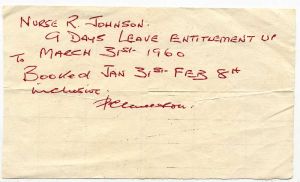 NURSE R. JOHNSON.
9 DAYS LEAVE ENTITLEMENT UP
TO MARCH 31ST 1960
BOOKED JAN 31ST FEB 8TH
inclusive.